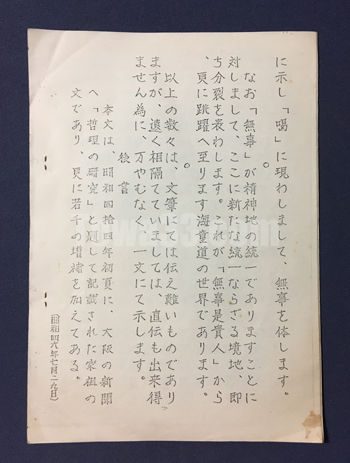 に示し「喝」に現わしまして、無事を体します。
なお「無事」が精神地の統一でありますことに
対しまして、ここに新たな統一ならざる境地、即
ち分裂を表わします。これが「無事是貴人」から
、更に跳躍へ至ります海童道の世界であります。
以上の数々は、文筆にては伝え難いものであり
ますが、遠く相隔てていましては、直伝も出来得
ません為に、万やむなく、一文にて示します。
後言
本文は、昭和四拾四年初夏に、大阪の新聞
へ「哲理の研究」と題して記載された宗祖の
文であり、更に若干の増補を加えてある。
(昭和四六年七月二九日)